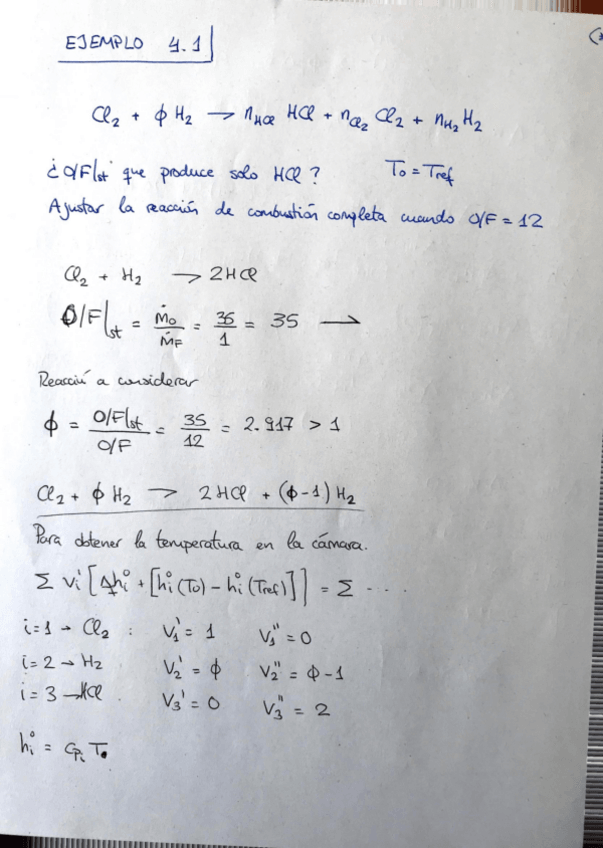 EJEMPLO 4.1
Cl₂ + ϕ H₂ → n_HCl HCl + n_Cl₂ Cl₂ + n_H₂ H₂
¿O/F|st que produce solo HCl? T₀ = Tref
Ajustar la reacción de combustión completa cuando O/F = 12
Cl₂ + H₂ → 2HCl
O/F|st = ṁ_O / ṁ_F = 36/1 = 35 →
Reacción a considerar
ϕ = O/F|st / O/F = 35/12 = 2.917 > 1
Cl₂ + ϕ H₂ → 2 HCl + (ϕ-1) H₂
Para obtener la temperatura en la cámara.
Σ νi' [Δfhi° + [hi°(T₀) - hi°(Tref)]] = Σ ....
i=1 → Cl₂ : ν₁' = 1 ν₁'' = 0
i=2 → H₂ ν₂' = ϕ ν₂'' = ϕ-1
i=3 → HCl ν₃' = 0 ν₃'' = 2
hi° = Cpi T₀